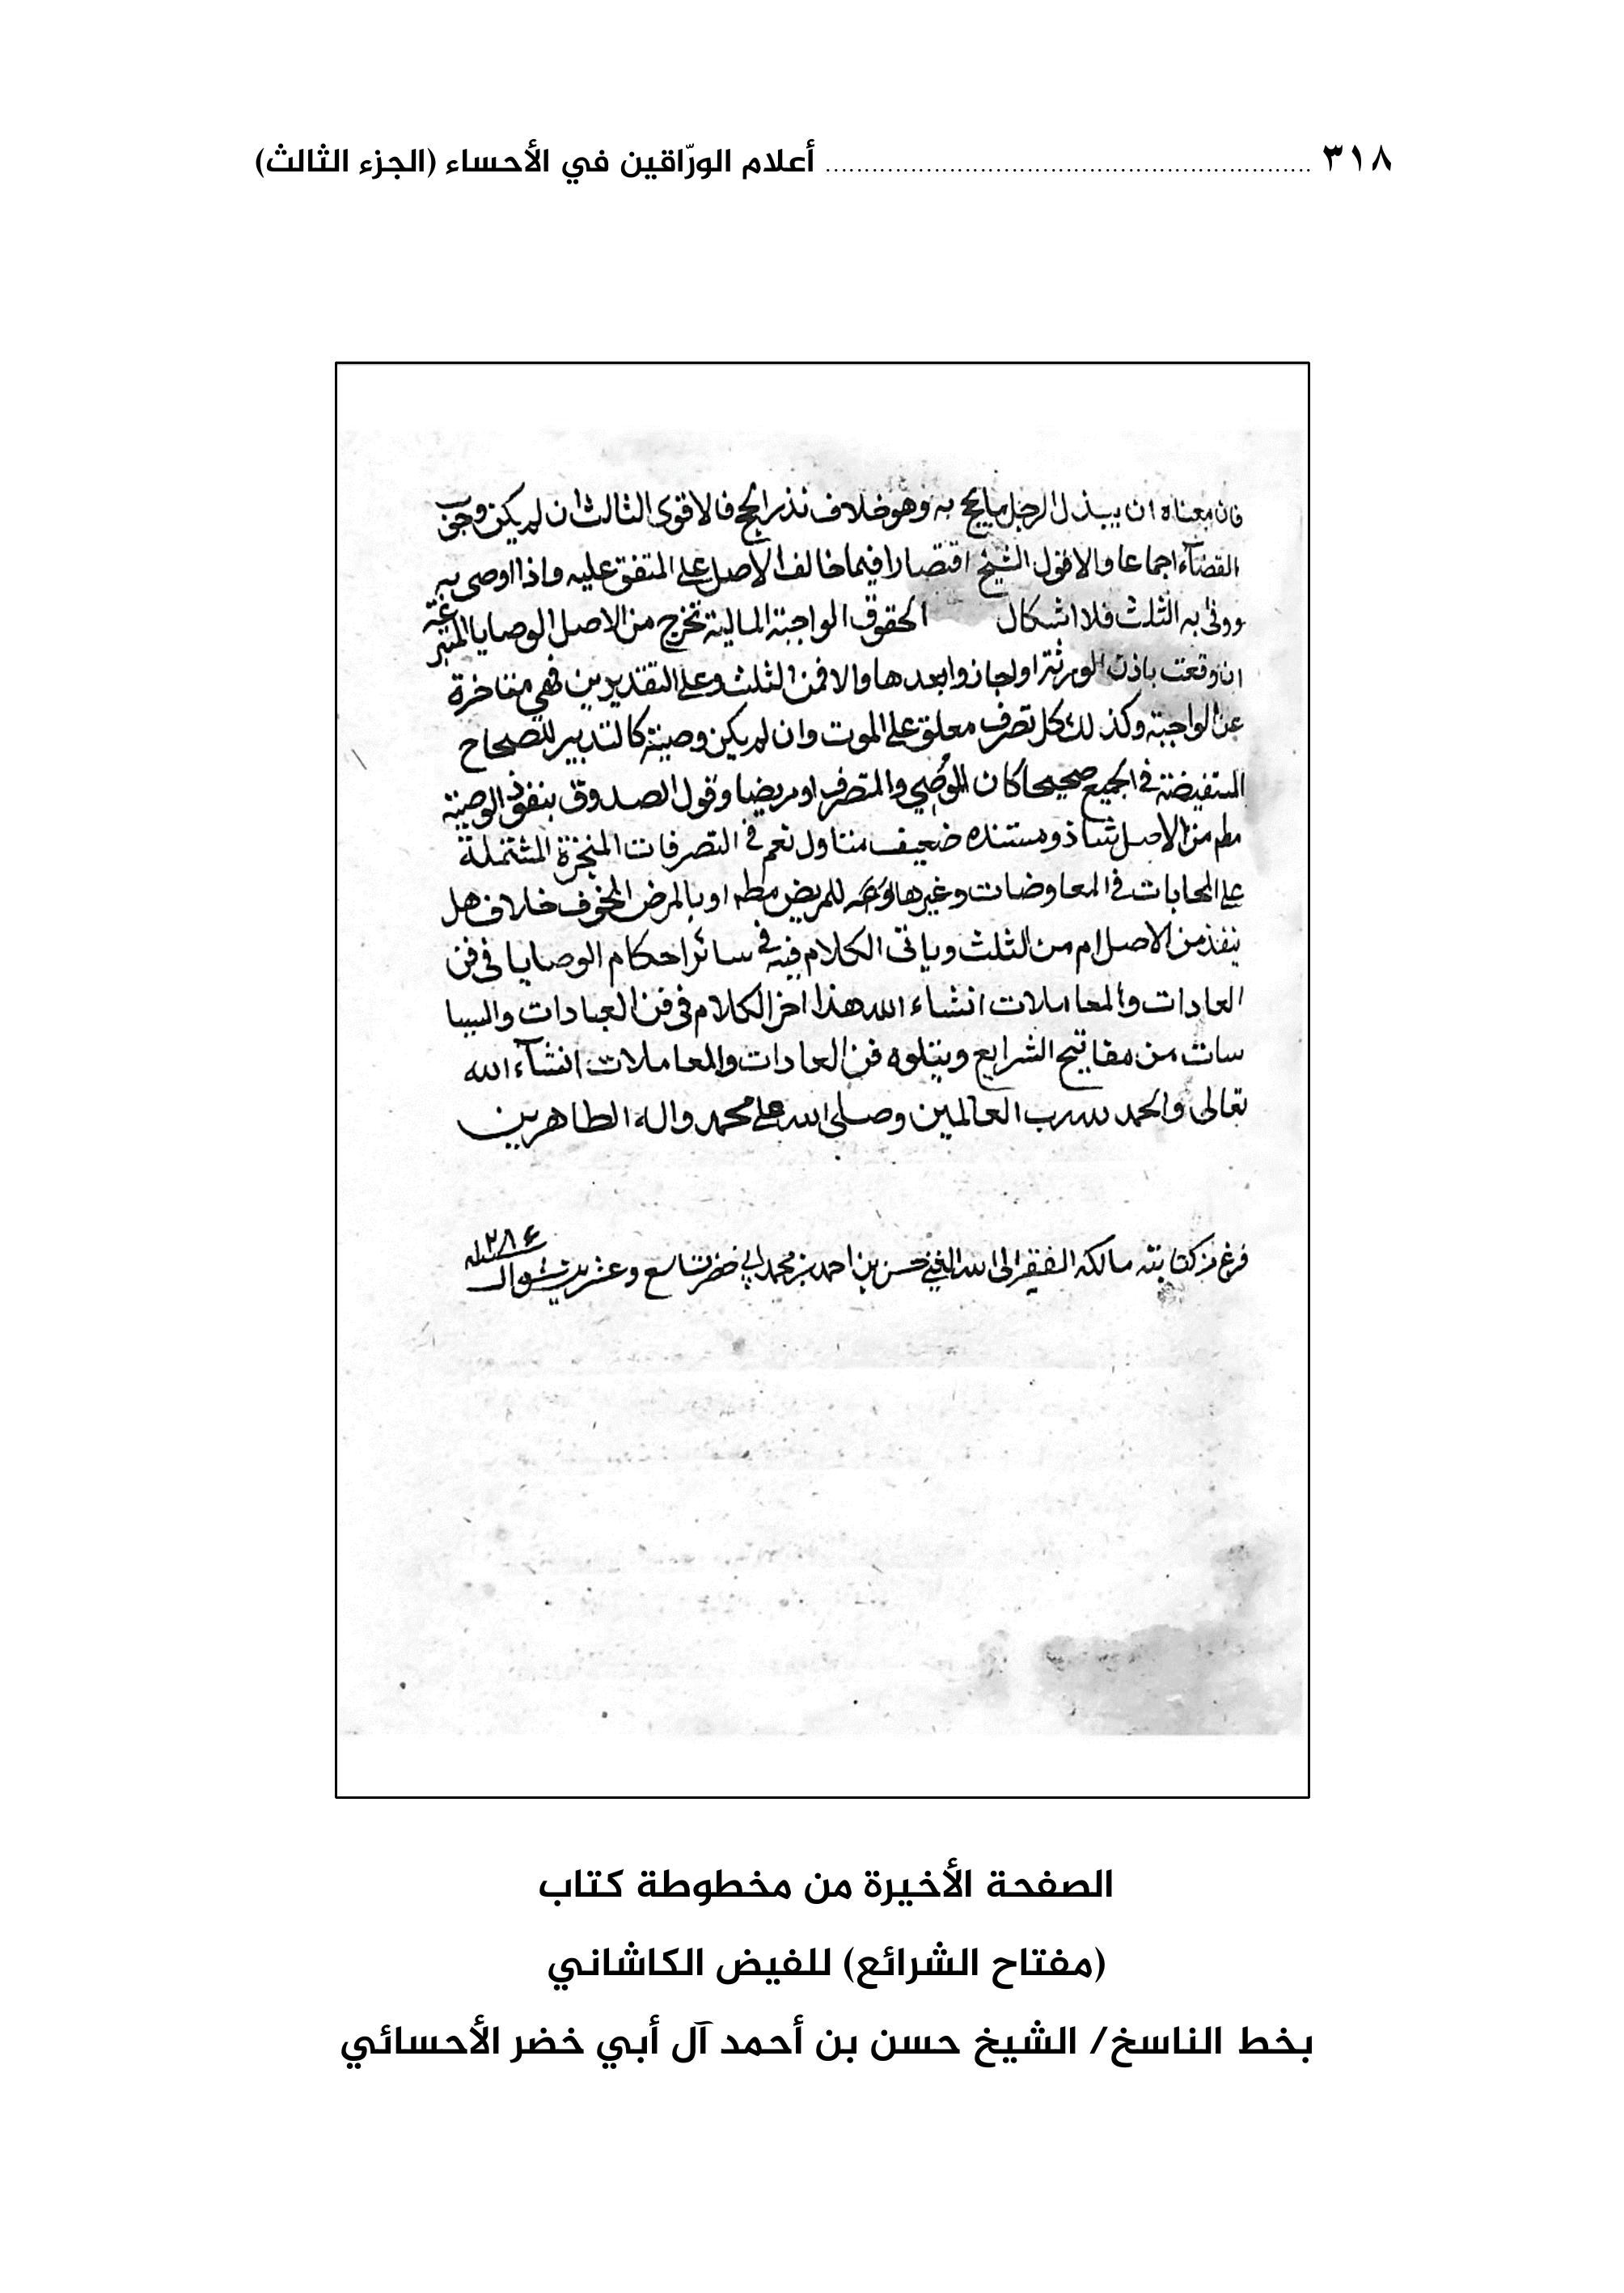 ٣١٨ ........ أعلام الورّاقين في الأحساء (الجزء الثالث)
فان معناه ان يبذل الرجل ما يحج به وهو خلاف نذر الحج فالاقوى الثالث ان لم يكن وجوب
القضآء اجماعا والا فقول الشيخ اقتصارا فيما خالف الاصل على المتفق عليه واذا اوصى به
ووفى به الثلث فلا اشكال الحقوق الواجبة المالية تخرج من الاصل الوصايا المتبرعة
ان وقعت باذن الورثة او اجازوا بعدها والا فمن الثلث وعلى التقديرين فهي متاخرة
عن الواجبة وكذلك كل تصرف معلق على الموت وان لم يكن وصية كالتدبير للصحاح
المستفيضة في الجميع صحيحا كان الموصي والمتصرف او مريضا وقول الصدوق بنفوذ الوصية
مطم من الاصل شاذ ومستنده ضعيف متاول نعم في التصرفات المنجزة المشتملة
على المحابات في المعاوضات وغيرها للمريض مطم او بالمرض المخوف خلاف هل
ينفذ من الاصل ام من الثلث وياتى الكلام فيه في سائر احكام الوصايا في فن
العادات والمعاملات انشاء الله هذا اخر الكلام في فن العبادات والسيا
سات من مفاتيح الشرايع ويتلوه فن العادات والمعاملات انشآء الله
تعالى والحمد لله رب العالمين وصلى الله على محمد واله الطاهرين
فرغ من كتابته مالكه الفقير الى الله الغني حسن بن احمد بن محمد ابي خضر تاسع وعشرين شوال سنة ١٢٨٤
الصفحة الأخيرة من مخطوطة كتاب
(مفتاح الشرائع) للفيض الكاشاني
بخط الناسخ/ الشيخ حسن بن أحمد آل أبي خضر الأحسائي